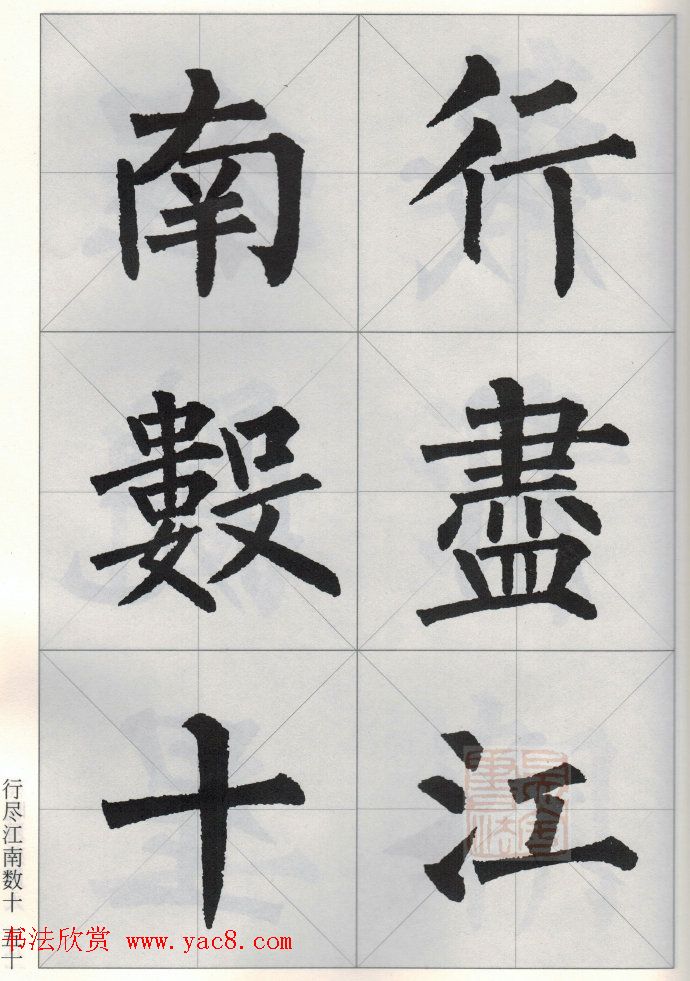 行盡江
南數十
行尽江南数十
五十
书法欣赏 www.yac8.com